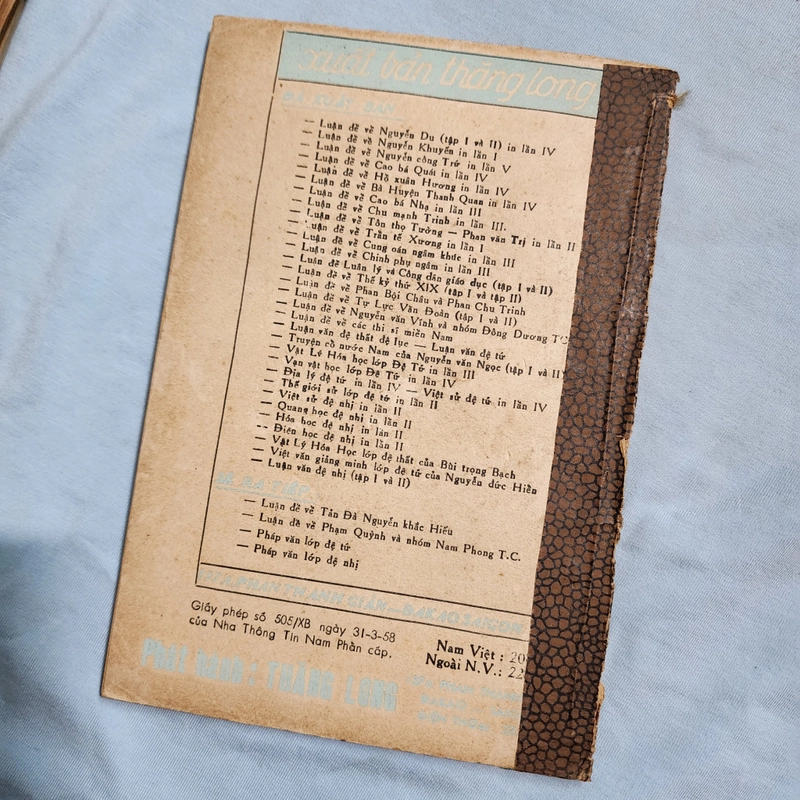 xuất bản thăng long
ĐÃ XUẤT BẢN
— Luận đề về Nguyễn Du (tập I và II) in lần IV
— Luận đề về Nguyễn Khuyến in lần I
— Luận đề về Nguyễn công Trứ in lần V
— Luận đề về Cao bá Quát in lần IV
— Luận đề về Hồ xuân Hương in lần IV
— Luận đề về Bà Huyện Thanh Quan in lần IV
— Luận đề về Cao bá Nhạ in lần III
— Luận đề về Chu mạnh Trinh in lần III.
— Luận đề về Tôn thọ Tường — Phan văn Trị in lần II
— Luận đề về Trần tế Xương in lần I
— Luận đề về Cung oán ngâm khúc in lần III
— Luận đề về Chinh phụ ngâm in lần III
— Luận đề Luân lý và Công dân giáo dục (tập I và II)
— Luận đề về Thế kỷ thứ XIX (tập I và tập II)
— Luận đề về Phan Bội Châu và Phan Chu Trinh
— Luận đề về Tự Lực Văn Đoàn (tập I và II)
— Luận đề về Nguyễn văn Vĩnh và nhóm Đông Dương TC
— Luận đề về các thi sĩ miền Nam
— Luận văn đệ thất đệ lục — Luận văn đệ tứ
— Truyện cổ nước Nam của Nguyễn văn Ngọc (tập I và II)
— Vật Lý Hóa học lớp Đệ Tứ in lần III
— Vạn vật học lớp Đệ Tứ in lần IV
— Địa lý đệ tứ in lần IV — Việt sử đệ tứ in lần IV
— Thế giới sử lớp đệ tứ in lần II
— Việt sử đệ nhị in lần II
— Quang học đệ nhị in lần II
— Hóa học đệ nhị in lần II
-- Điện học đệ nhị in lần II
— Vật Lý Hóa Học lớp đệ thất của Bùi trọng Bạch
— Việt văn giảng minh lớp đệ tứ của Nguyễn đức Hiền
— Luận văn đệ nhị (tập I và II)
SẼ RA TIẾP
— Luận đề về Tản Đà Nguyễn khắc Hiếu
— Luận đề về Phạm Quỳnh và nhóm Nam Phong T.C.
— Pháp văn lớp đệ tứ
— Pháp văn lớp đệ nhị
PHAN THANH GIẢN — ĐAKAO SAIGON
Giấy phép số 505/XB ngày 31-3-58
của Nha Thông Tin Nam Phần cấp.
Nam Việt : 20
Ngoài N.V.: 22
Phát hành : THĂNG LONG